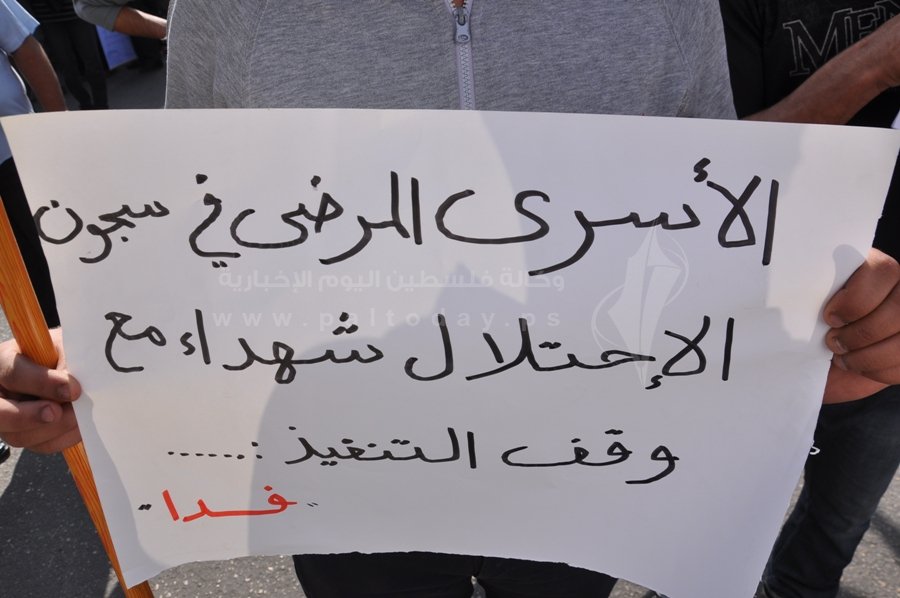 MEN
الأسرى المرضى في سجون
وكالة فلسطين اليوم الإخبارية
www.paltoday.ps
الإحتلال شهداء مع
وقف التنفيذ :......
"فدا"